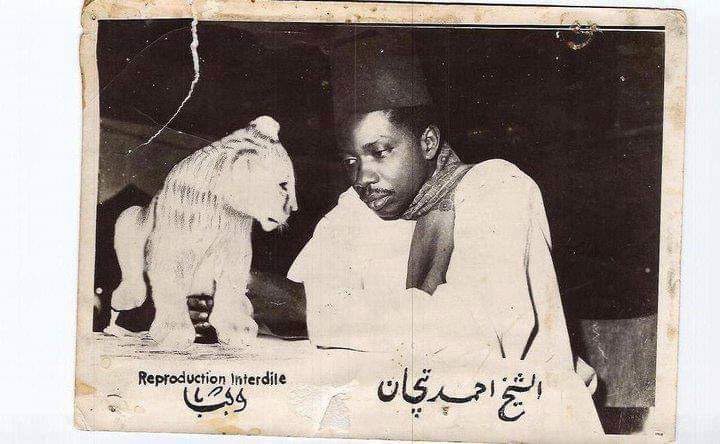 Reproduction Interdite
الشيخ احمد تجان